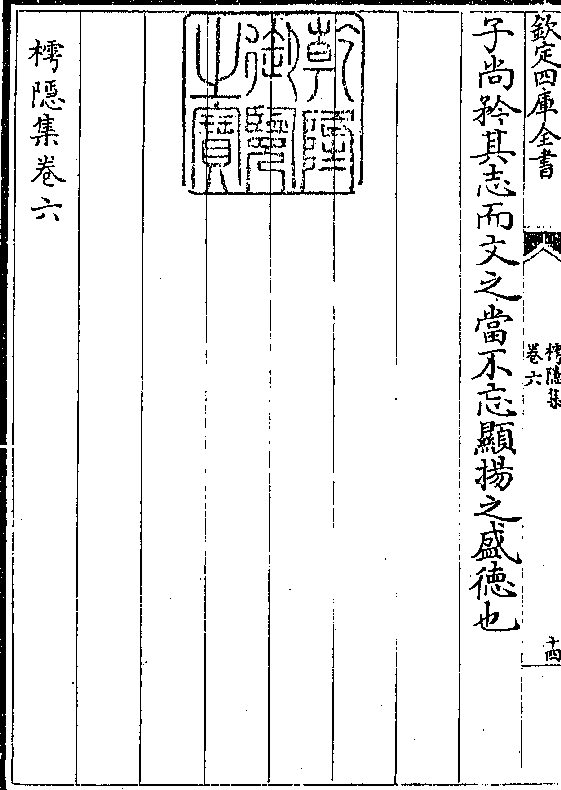 欽定四庫全書
樗隱集
卷六
十四
子尚矜其志而文之當不忘顯揚之盛德也
乾隆
御覽
之寶
樗隱集卷六